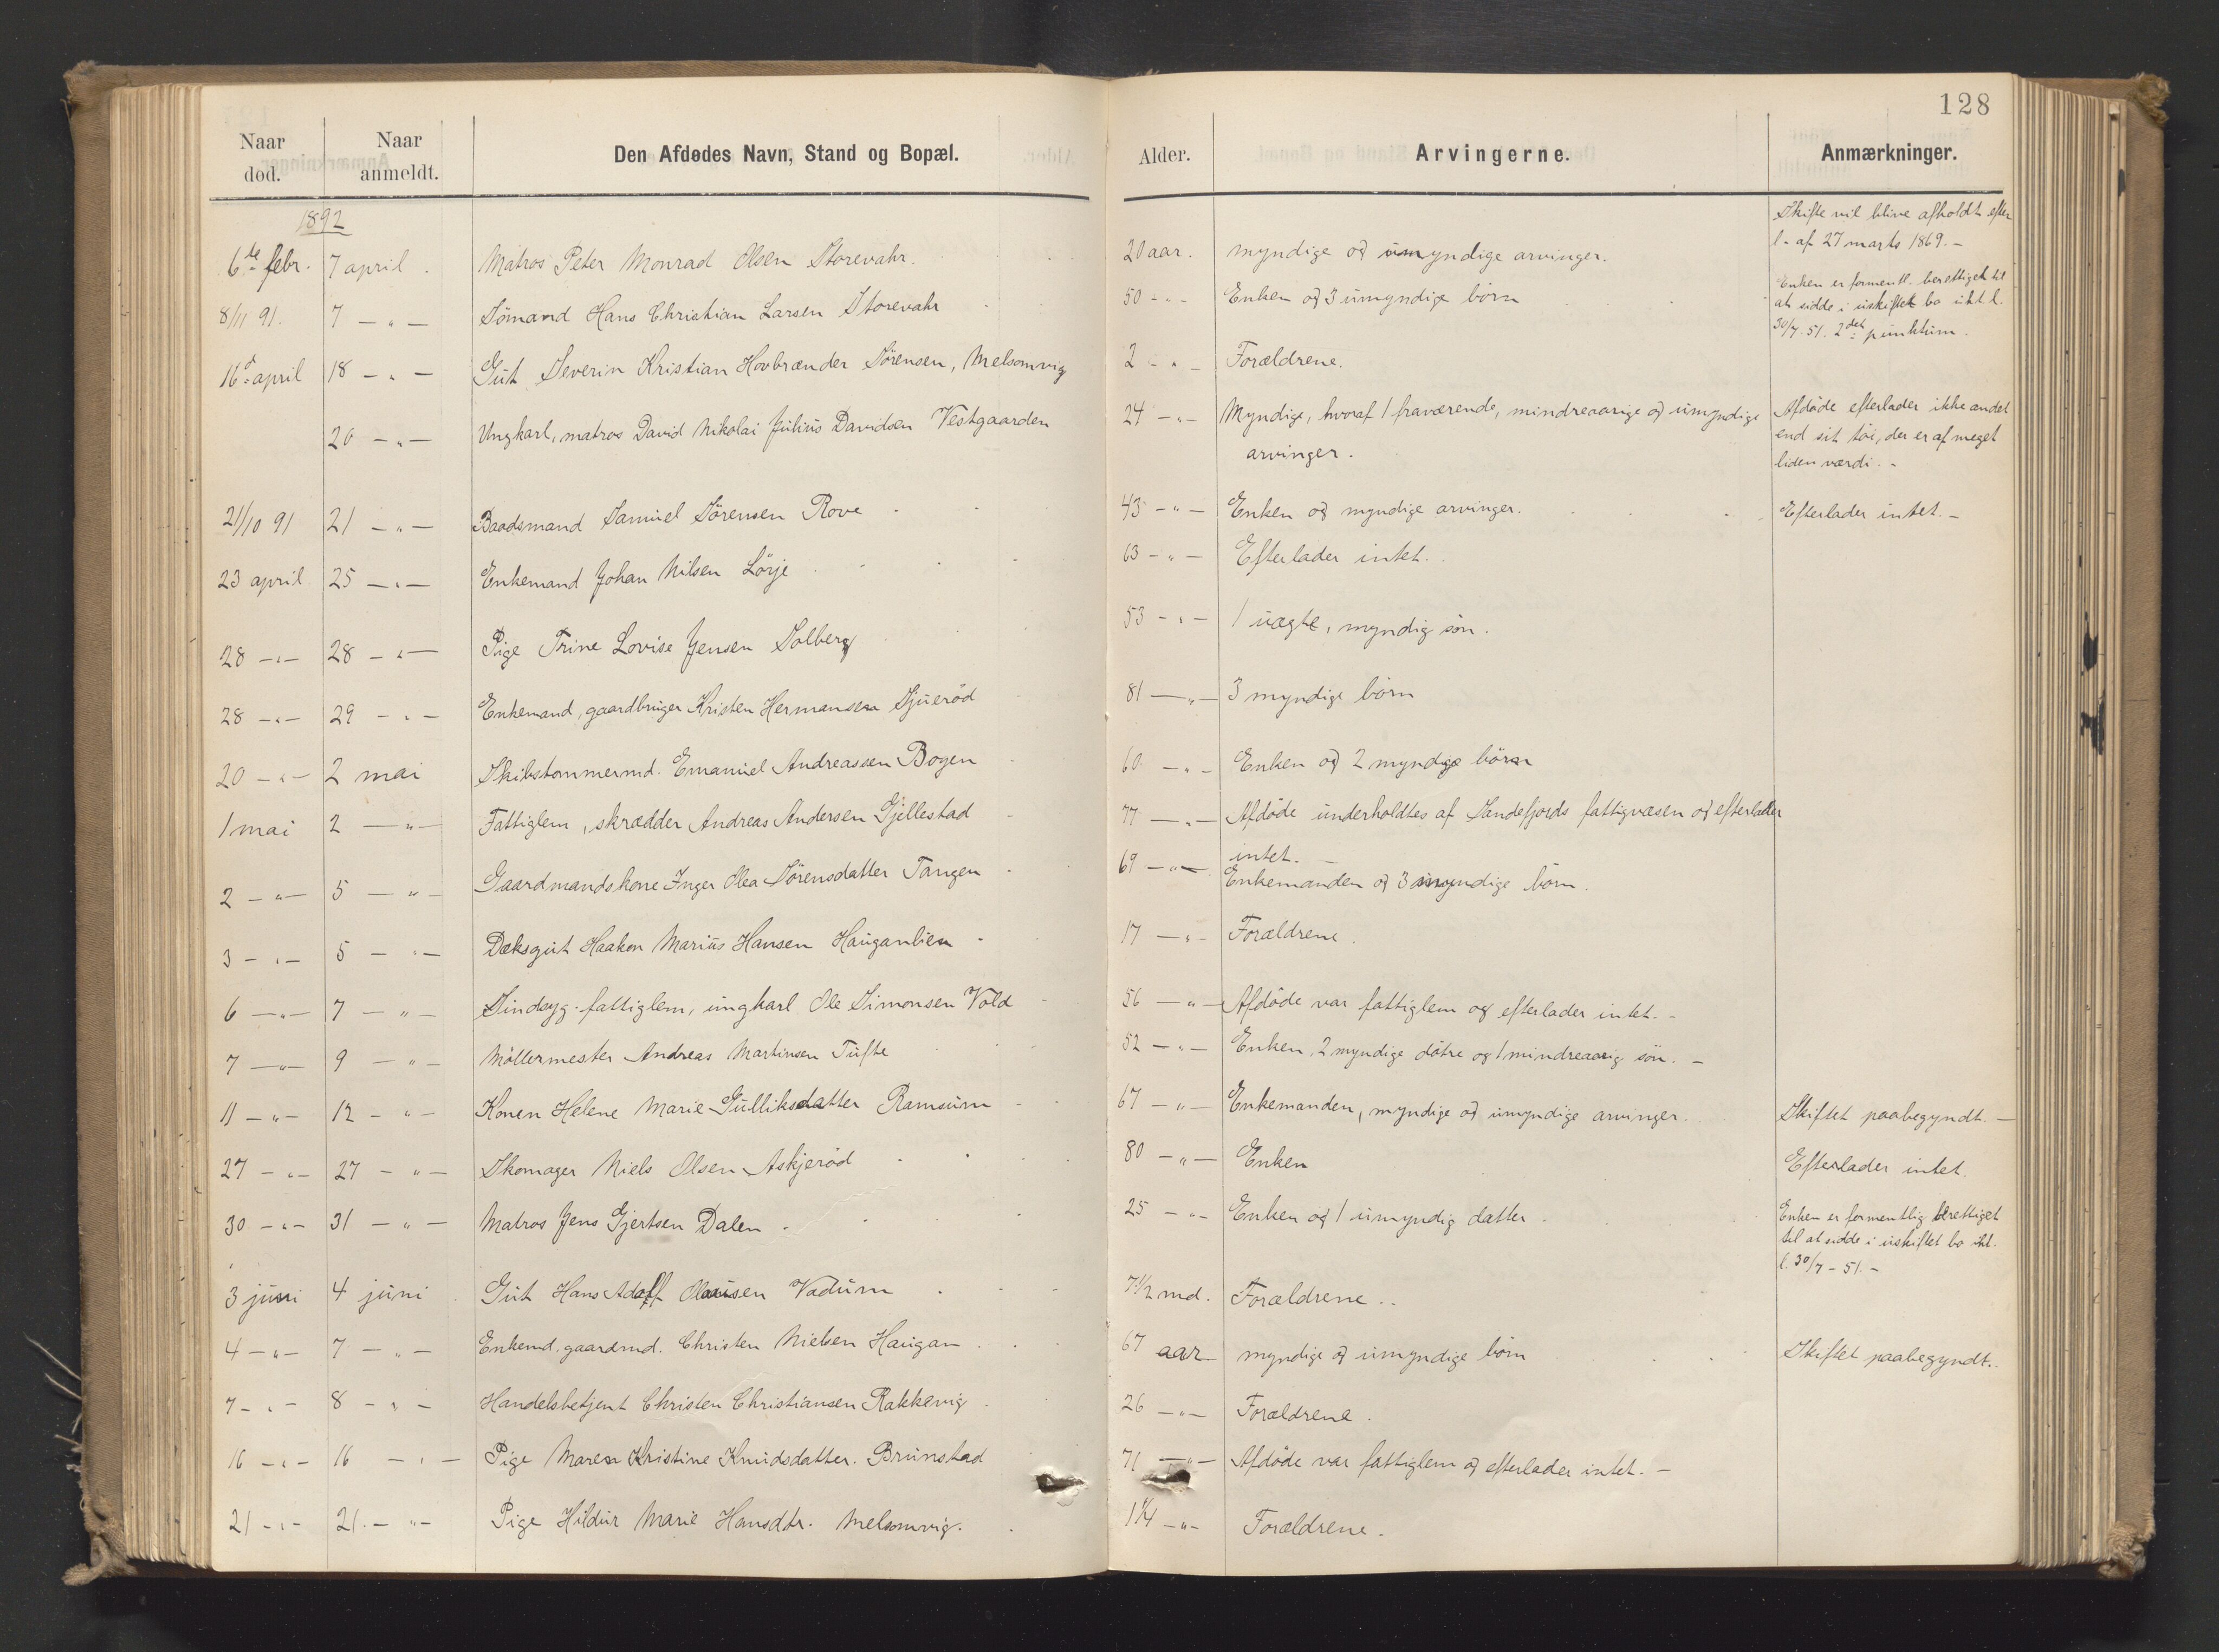 128
Naar død. Naar anmeldt. Den Afdødes Navn, Stand og Bopæl. Alder. Arvingerne. Anmærkninger.
1892
6te febr. 7 april. Matros Peter Monrad Olsen Storevahr. 20 aar. myndige og umyndige arvinger. Skifte vil blive afholdt efter
l. af 27 marts 1869. –
8/11 91. 7 – " – Sömand Hans Christian Larsen Storevahr 50 – " – Enken og 3 umyndige börn Enken er formentl. berettiget til
at sidde i uskiftet bo iht l.
30/7. 51. 2det punktum.
16d april 18 – " – Gut Severin Kristian Hovbrænder Sörensen, Melsomvig 2 – " – Forældrene.
20 – " – Ungkarl, matros David Nikolai Julius Davidsen Vestgaarden 24 – " – Myndige, hvoraf 1 fraværende, mindreaarige og umyndige Afdöde efterlader ikke andet
arvinger. end sit töi, der er af meget
liden værdi. –
21/10 91 21 – " – Baadsmand Samuel Sörensen Rove 43 – " – Enken og myndige arvinger. Efterlader intet. –
23 april 25 – " – Enkemand Johan Nilsen Lörje 63 – " – Efterlader intet.
28 – " – 28 – " – Pige Trine Lovise Jensen Solberg 53 – " – 1 uægte, myndig sön.
28 – " – 29 – " – Enkemand, gaardbruger Kristen Hermansen Sjueröd 81 – " – 3 myndige börn
20 – " – 2 mai Skibstömmermd. Emanuel Andreassen Bogen 60 – " – Enken og 2 myndige börn
1 mai 2 – " – Fattiglem, skrædder Andreas Andersen Gjellestad 77 – " – Afdöde underholdtes af Sandefjords fattigvæsen og efterlader
intet. –
2 – " – 5 – " – Gaardmandskone Inger Olea Sörensdatter Tangen 69 – " – Enkemanden og 3 myndige börn.
3 – " – 5 – " – Dæksgut Haakon Marius Hansen Hauganlien 17 – " – Forældrene.
6 – " – 7 – " – Sindsyg fattiglem, ungkarl Ole Simonsen Vold 56 – " – Afdöde var fattiglem og efterlader intet. –
7 – " – 9 – " – Möllermester Andreas Martinsen Tufte 52 – " – Enken, 2 myndige dötre og 1 mindreaarig sön. –
11 – " – 12 – " – Konen Helene Marie Gulliksdatter Ramsum 67 – " – Enkemanden, myndige og umyndige arvinger. Skiftet paabegyndt. –
27 – " – 27 – " – Skomager Niels Olsen Askjeröd 80 – " – Enken Efterlader intet.
30 – " – 31 – " – Matros Jens Gjertsen Dalen 25 – " – Enken og 1 umyndig datter. Enken er formentlig berettiget
til at sidde i uskiftet bo iht.
l. 30/7 – 51. –
3 juni 4 juni Gut Hans Adolf Olausen Vadum 7 1/2 md. Forældrene.
4 – " – 7 – " – Enkemd. gaardmd. Christen Nielsen Haugan 67 aar myndige og umyndige börn Skiftet paabegyndt.
7 – " – 8 – " – Handelsbetjent Christen Christiansen Rakkevig 26 – " – Forældrene.
16 – " – 16 – " – Pige Maren Kristine Knudsdatter. Brunstad 71 – " – Afdöde var fattiglem og efterlader intet. –
21 – " – 21. – " – Pige Hildur Marie Hansdtr. Melsomvig. 1 1/4 – " – Forældrene.